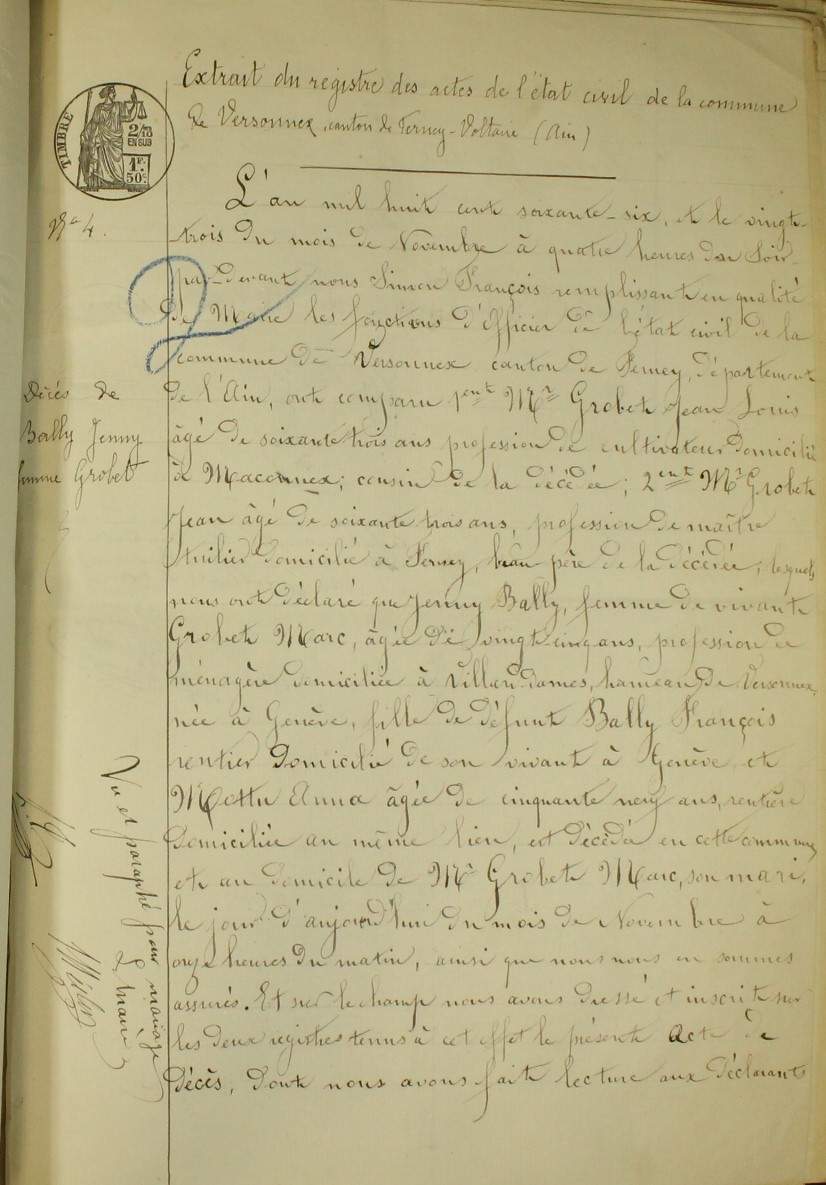 Extrait du registre des actes de l'état civil de la commune
de Versonnex, canton de Ferney-Voltaire (Ain)
TIMBRE
2/10
EN SUS
1F.
50c.
No 4.
L'an mil huit cent soixante-six, et le vingt-
trois du mois de Novembre à quatre heures du Soir
par-devant nous Simon François remplissant en qualité
de Maire les fonctions d'Officier de l'état civil de la
commune de Versonnex canton de Ferney, département
de l'Ain, ont comparu 1ent Mr Grobet Jean Louis
âgé de soixante trois ans profession de cultivateur domicilié
à Maconnex; cousin de la décédée; 2ent Mr Grobet
Jean âgé de soixante trois ans, profession de maître
tuilier domicilié à Ferney, beau père de la décédée, lesquels
nous ont déclaré que Jenny Bally, femme de vivant
Grobet Marc, âgée de vingt-cinq ans, profession de
ménagère domiciliée à Villard-dames, hameau de Versonnex,
née à Genève, fille de défunt Bally François
rentier domicilié de son vivant à Genève, et
Mottu Anna âgée de cinquante neuf ans, rentière
domiciliée au même lieu, est décédée en cette commune
et au domicile de Mr Grobet Marc, son mari,
le jour d'aujourd'hui du mois de Novembre à
onze heures du matin, ainsi que nous nous en sommes
assurés. Et sur le champ nous avons dressé et inscrit sur
les deux registres tenus à cet effet le présent acte de
décès, dont nous avons fait lecture aux déclarants
Décès de
Bally Jenny
femme Grobet
Vu et paraphé pour mariage
Le maire